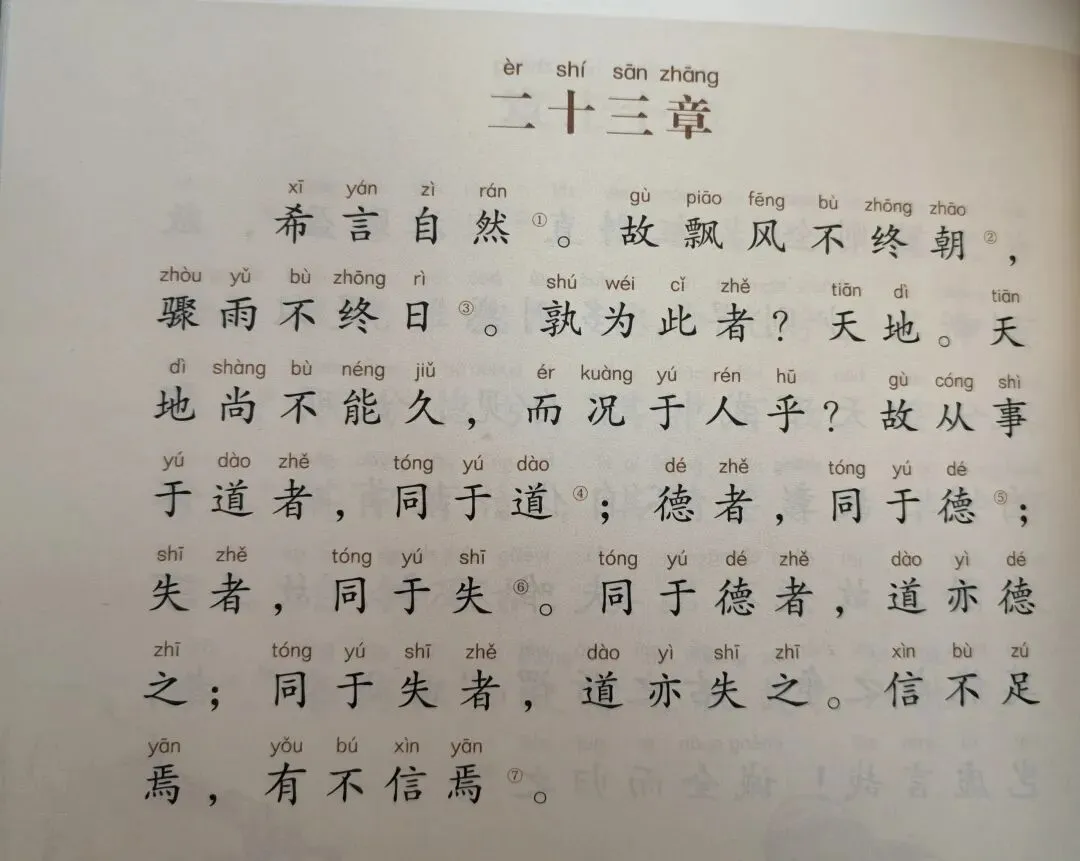 èr shí sān zhāng
二十三章
xī yán zì rán gù piāo fēng bù zhōng zhāo
希言自然①。故飘风不终朝②，
zhòu yǔ bù zhōng rì shú wéi cǐ zhě tiān dì tiān
骤雨不终日③。孰为此者？天地。天
dì shàng bù néng jiǔ ér kuàng yú rén hū gù cóng shì
地尚不能久，而况于人乎？故从事
yú dào zhě tóng yú dào dé zhě tóng yú dé
于道者，同于道④；德者，同于德⑤；
shī zhě tóng yú shī tóng yú dé zhě dào yì dé
失者，同于失⑥。同于德者，道亦德
zhī tóng yú shī zhě dào yì shī zhī xìn bù zú
之；同于失者，道亦失之。信不足
yān yǒu bú xìn yān
焉，有不信焉⑦。